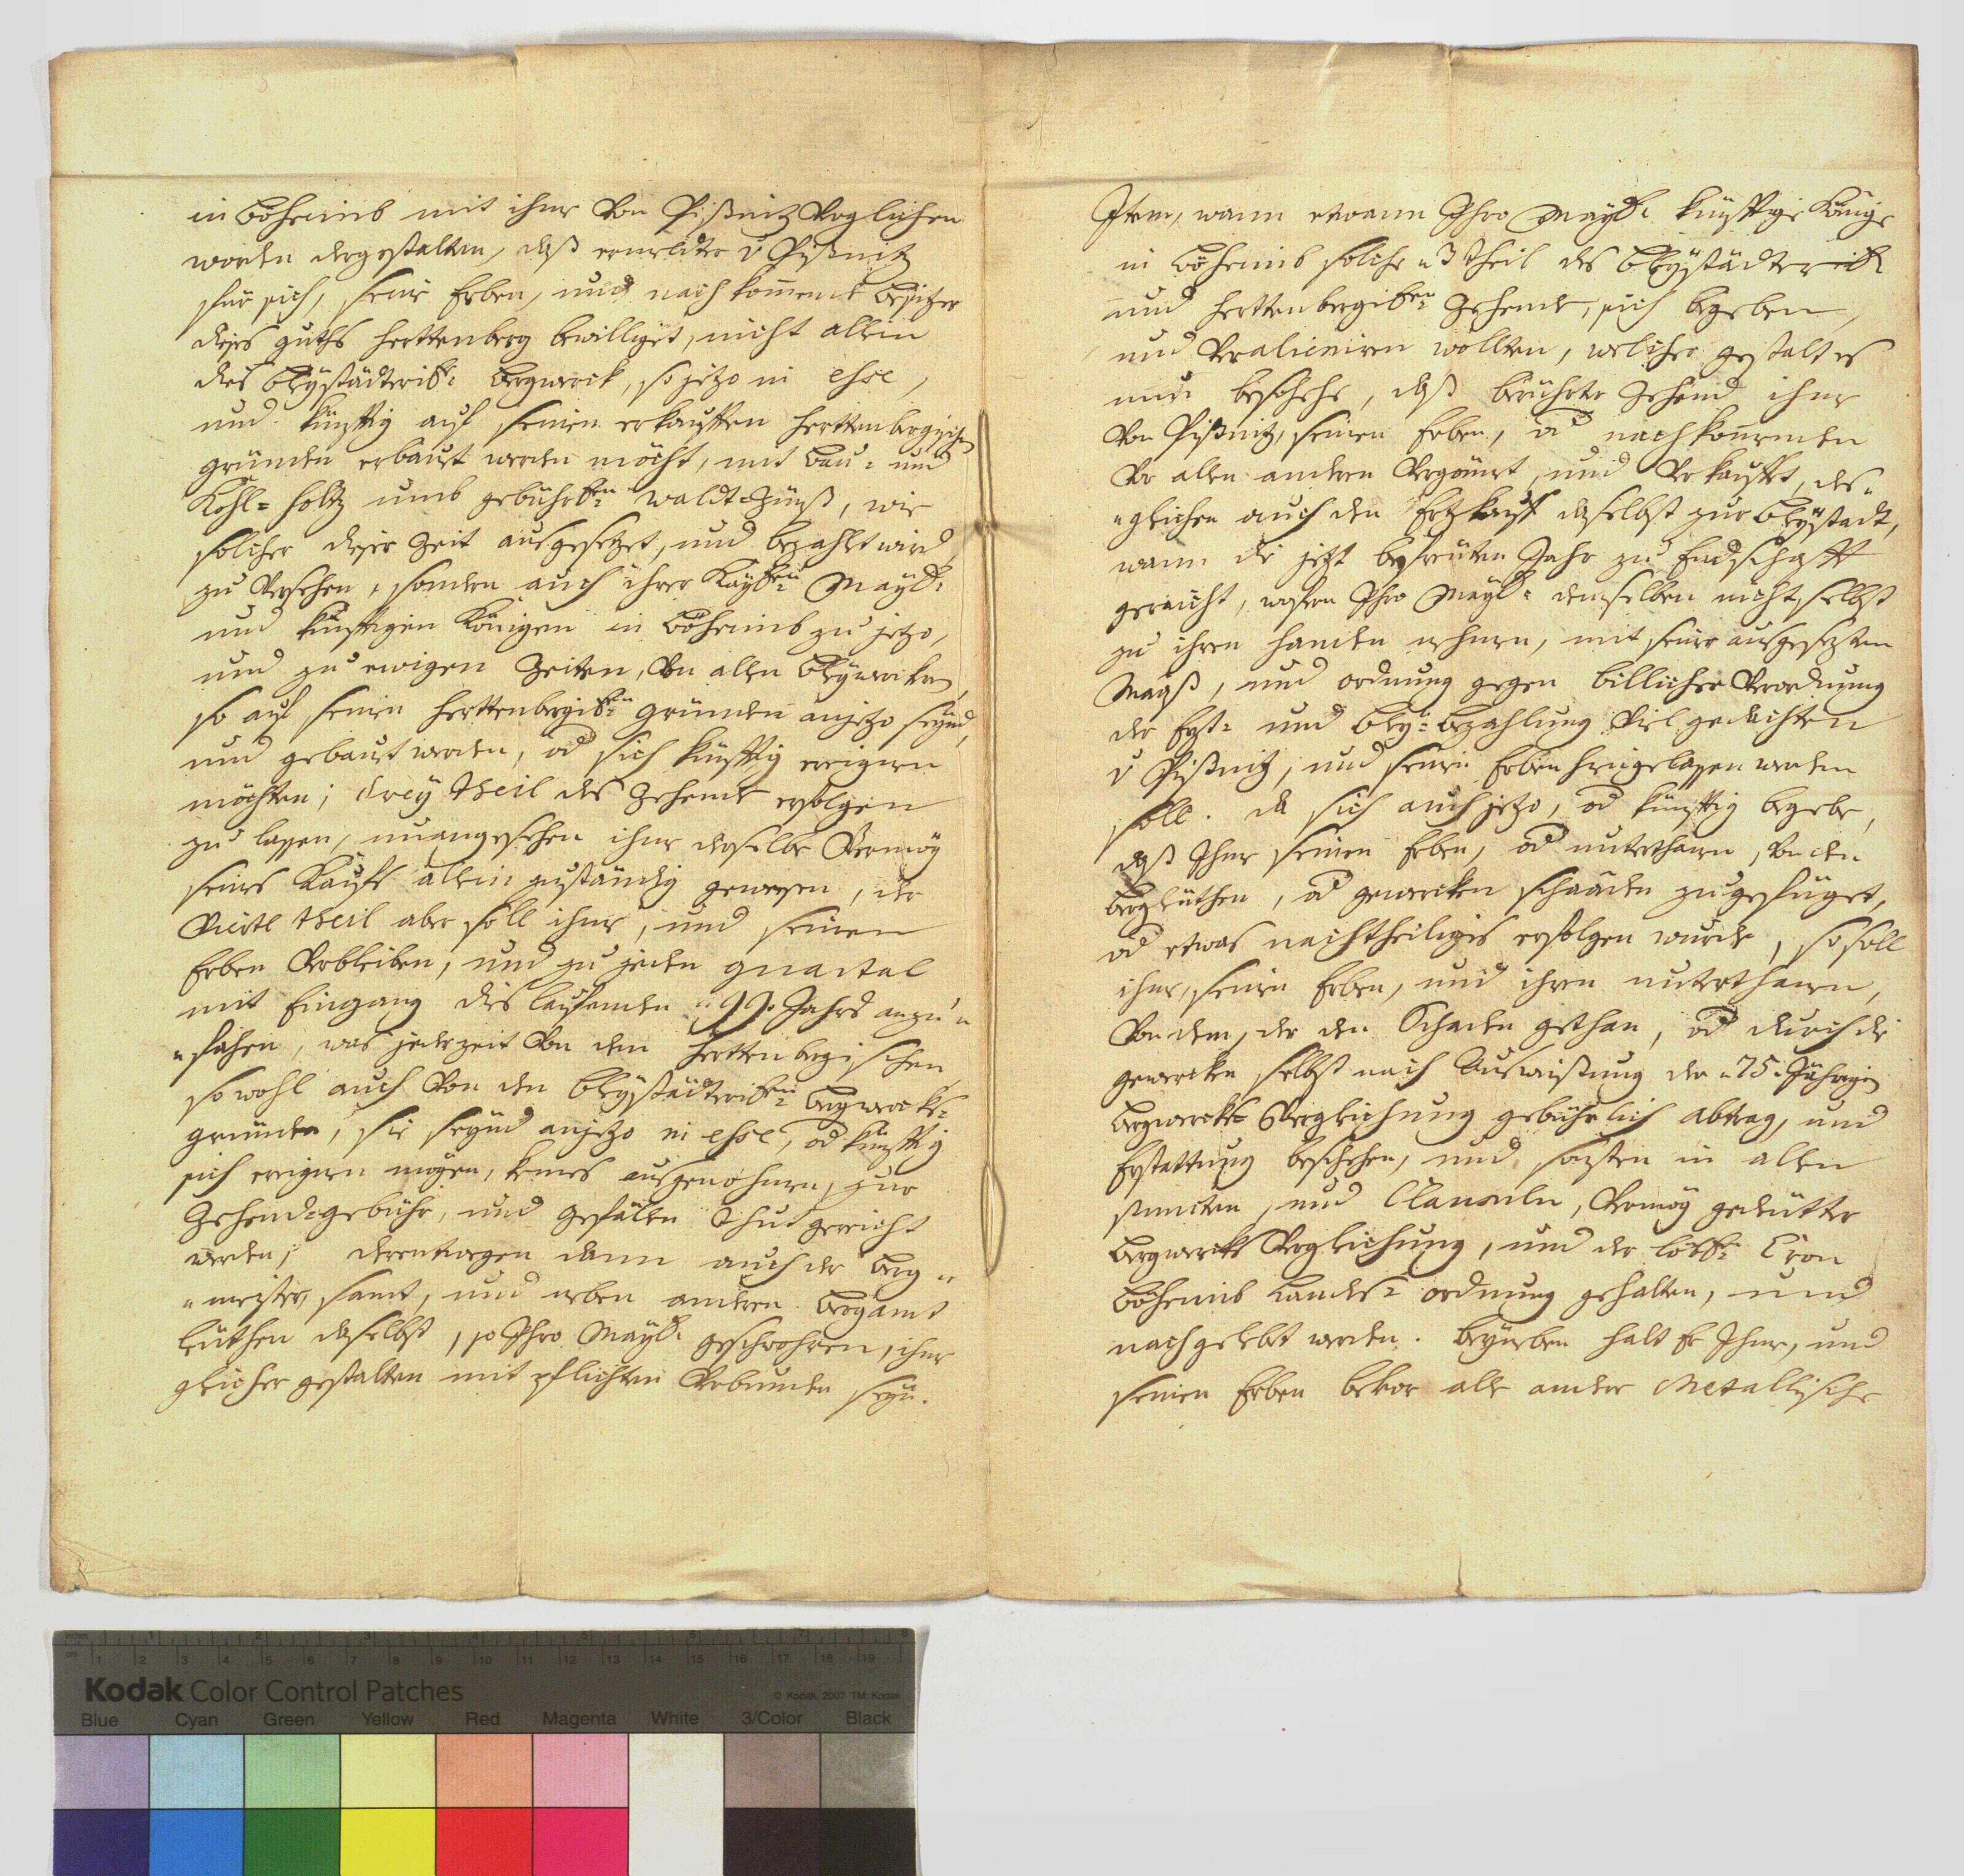 in Böheimb mit ihme Von Pißnitz Verglichen
worden dergestalten, daß ermeldter v Pißnitz
für sich, seine Erben, und nachkommende besitzer
dises guths Herttenberg bewilliget, nicht allein
des bleystädterisch: bergwerck, so jetzo in esse,
und künfftig auf seinen erkaufften Herttenbergischen
gründen erbaut werden möcht, mit bau- und
Kohl-holtz umb gebühr: waldt-Zünß, wie
solcher dieser Zeit ausgesetzet, und bezahlt wird
zu Versehen, sondern auch ihrer Kay: May:
und künfftigen Königen in böheimb zu jetzo,
und zu ewigen Zeiten, Von allen bleywercken,
so auf seinen Herttenbergisch: gründen anjetzo seynd,
und gebaut werden, od sich künfftig ereignen
möchten; drey theil des Zehends erfolgen
zu lassen, unangesehen ihme derselbe Vermög
seines Kaufs allein zuständig gewesen, der
Vierte theil aber soll ihme, und seinen
Erben Verbleiben, und zu jeden quartal
mit Eingang dis lauffenden 99. Jahrs anzu-
fahen, was jederzeit Von den Herttenbergischen,
so wohl auch Von den bleystädterisch: bergwercks-
gründen, sie seynd anjetzo in esse, od künfftig
sich ereignen mögen, keines ausgenohmen, zur
Zehend-gebühr, und gefällen thut gereicht
werden; derentwegen dann auch der berg-
meister, samt, und neben andern bergamt
leüthen daselbst, so Ihro May: geschwohren, ihme
gleicher gestalten mit pflichten Verbunden seyn.
Item, wann etwann Ihro May: künfftige Könige
in böheimb solche 3 theil des bleystädterisch:
und Herttenbergisch: Zehends, sich begeben,
und Veralieniren wollten, welcher gestalt es
nun beschehe, daß berührte Zehend ihme
Von Pißnitz, seinen Erben, od nachkommenden
Vor allen andern Vergönnt, und Verkaufft, des-
gleichen auch den Ertzkauff daselbst zur bleystadt,
wann die jetzt bestimten Jahr zu Endschafft
gereicht, wofern Ihro May: denselben nicht selbst
zu ihren handen nehmen, mit seiner ausgesetzten
Maaß, und ordnung gegen billicher Verordnung
der Ertz- und bley-bezahlung Viel gedachten
v Pißnitz, und seinen Erben hingelassen werden
soll. da sich auch jetzo, od künfftig begebe,
daß Ihme seinen Erben, od unterthanen, Von den
bergleüthen, od gewercken schaaden zugefüget,
od etwas nachtheiliges erfolgen wurde, so soll
ihme, seinen Erben, und ihren unterthanen,
Von dem, der den Schaden gethan, od durch die
gewercken selbst nach Ausweisung der 75. Jährigen
bergwercks Vergleichung gebührlich abtrag, und
Erstattung beschehen, und sonsten in allen
puncten, und Clausuln, Vermög gedeütter
bergwercks Vergleichung, und der löbl: Cron
böheimb Landes-ordnung gehalten, und
nachgelebt werden. beyneben halt Er Ihme, und
seinen Erben bevor alle andere Metallische
Kodak Color Control Patches
© Kodak, 2007 TM: Kodak
Blue Cyan Green Yellow Red Magenta White 3/Color Black